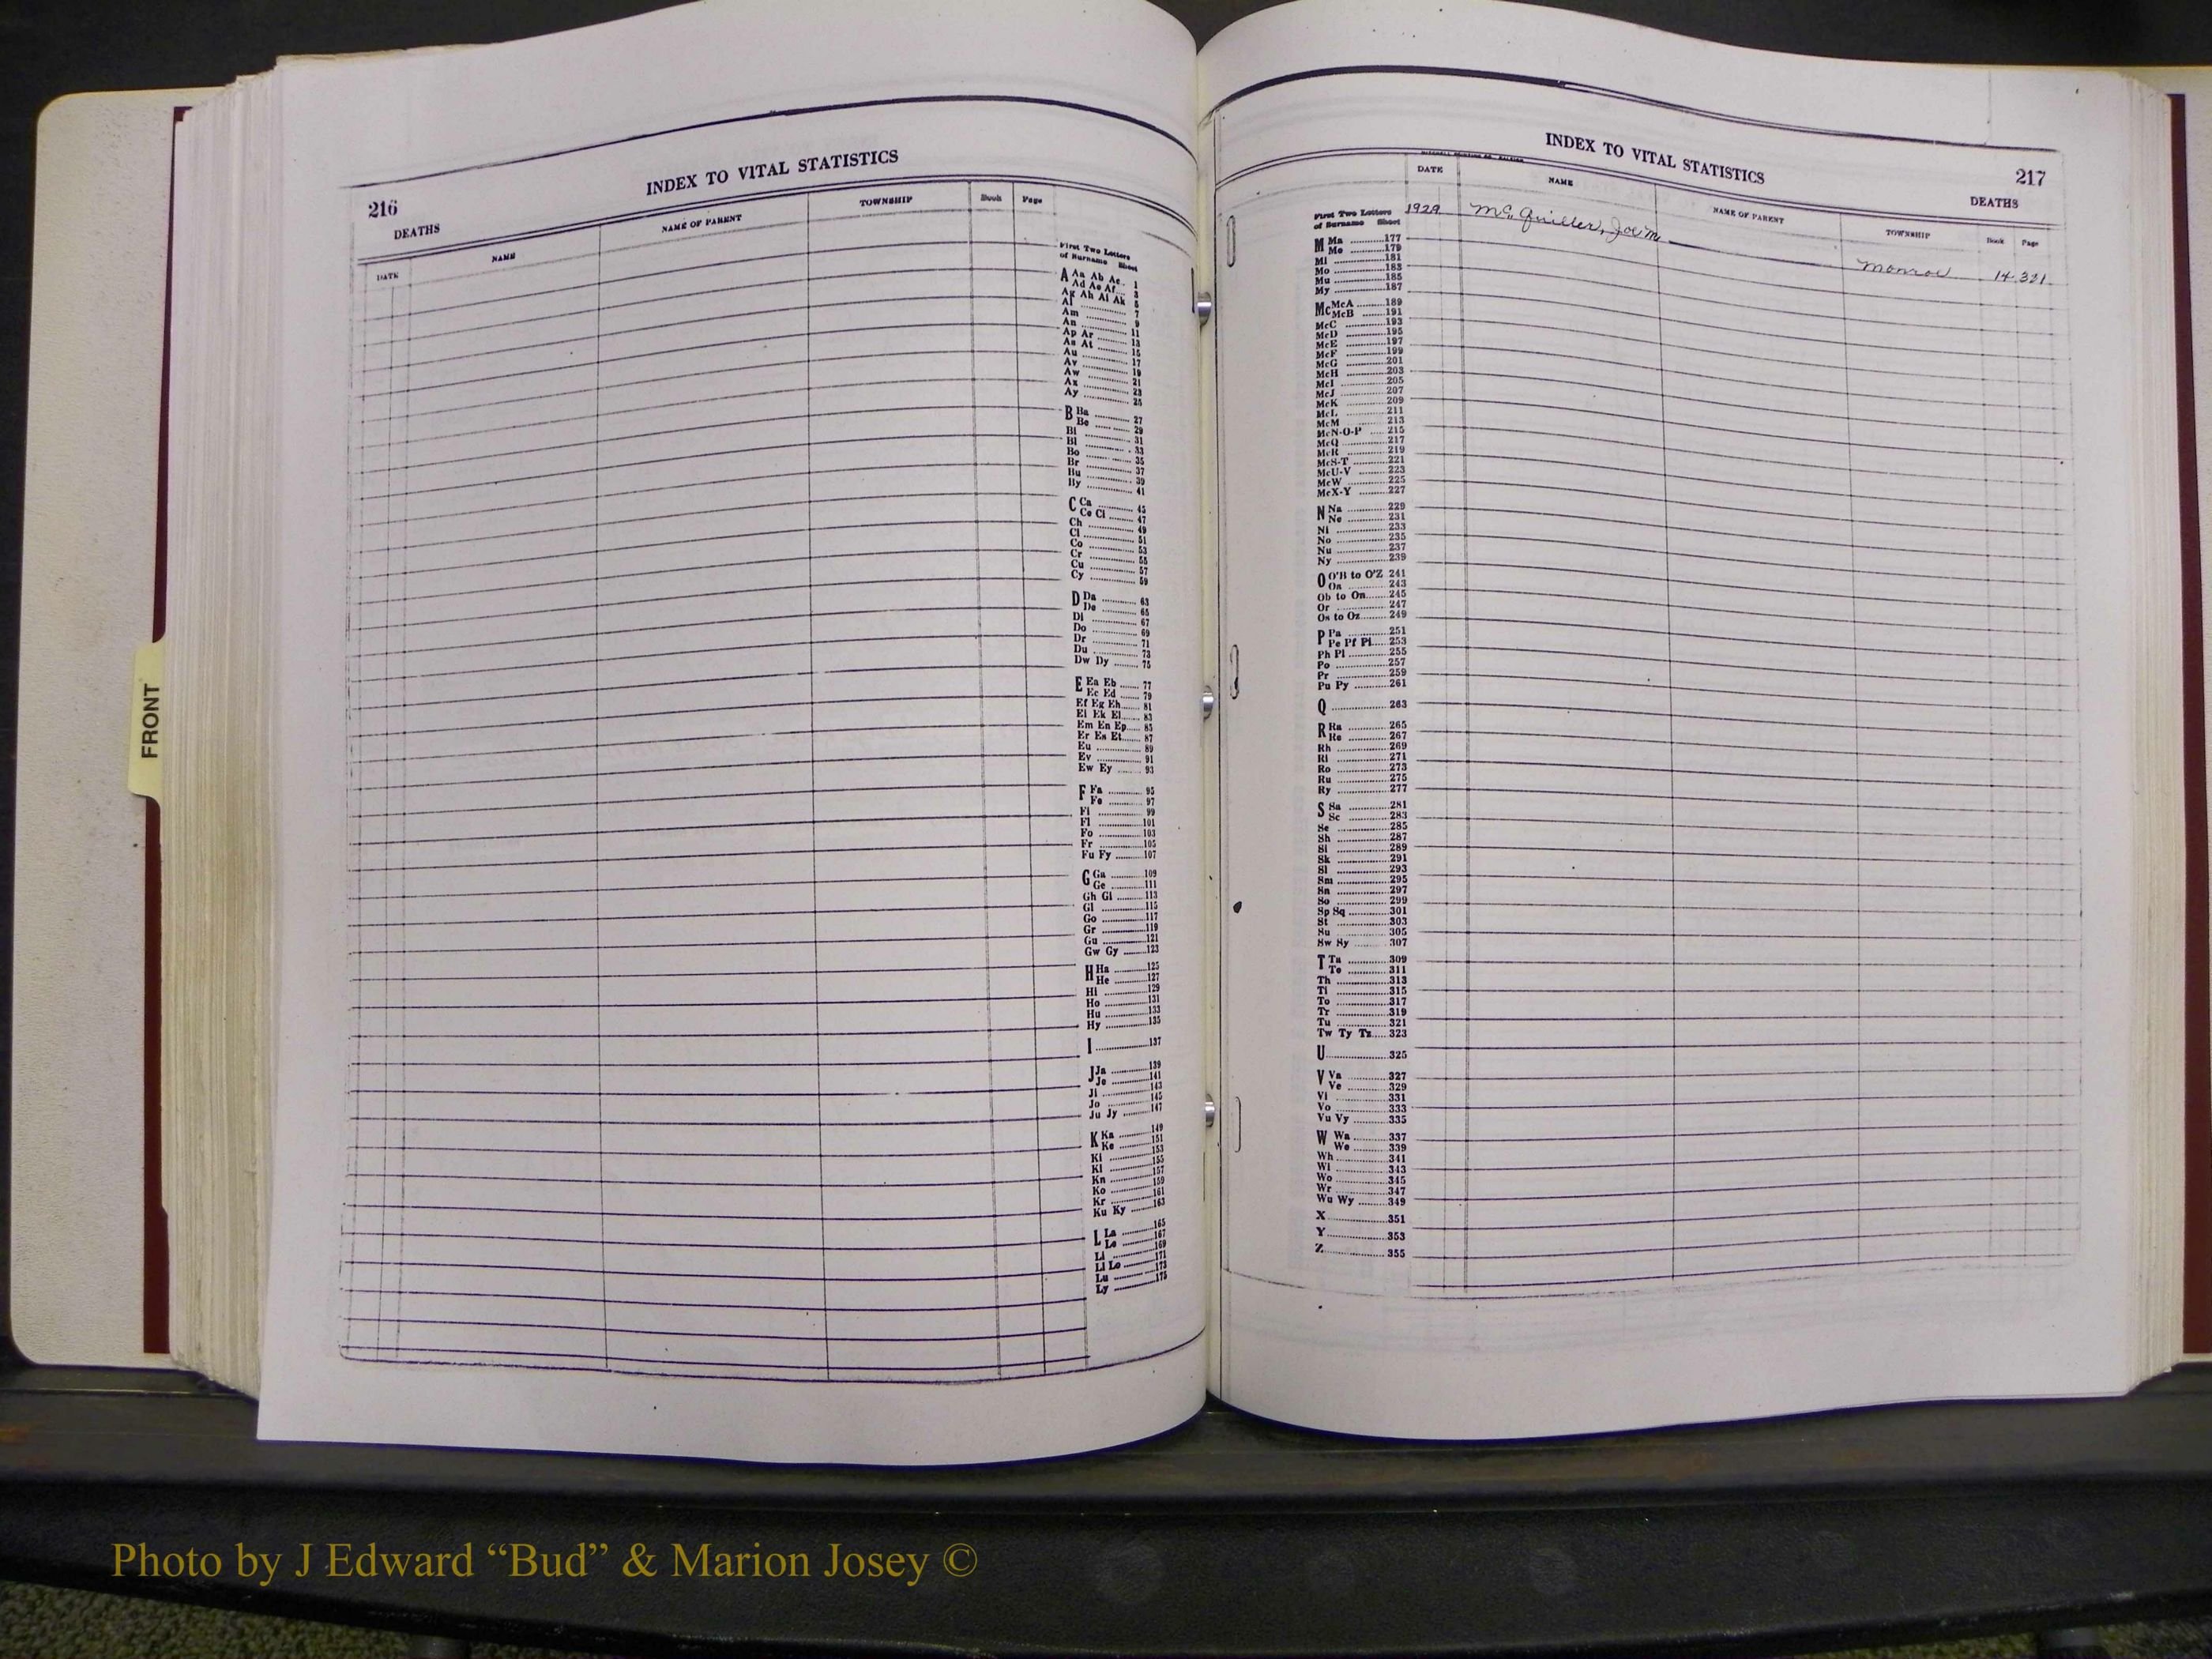 216
INDEX TO VITAL STATISTICS
DEATHS
DATE NAME NAME OF PARENT TOWNSHIP Book Page
First Two Letters
of Surname Sheet
A Aa Ab Ac 1
Ad Ae Af 3
Ag Ah Ai Ak 5
Al 7
Am 9
An 11
Ap Ar 13
As At 15
Au 17
Av 19
Aw 21
Ax 23
Ay 25
B Ba 27
Be 29
Bi 31
Bl 33
Bo 35
Br 37
Bu 39
By 41
C Ca 45
Ce Ci 47
Ch 49
Cl 51
Co 53
Cr 55
Cu 57
Cy 59
D Da 63
De 65
Di 67
Do 69
Dr 71
Du 73
Dw Dy 75
E Ea Eb 77
Ec Ed 79
Ef Eg Eh 81
Ei Ek El 83
Em En Ep 85
Er Es Et 87
Eu 89
Ev 91
Ew Ey 93
F Fa 95
Fe 97
Fi 99
Fl 101
Fo 103
Fr 105
Fu Fy 107
G Ga 109
Ge 111
Gh Gi 113
Gl 115
Go 117
Gr 119
Gu 121
Gw Gy 123
H Ha 125
He 127
Hi 129
Ho 131
Hu 133
Hy 135
I 137
J Ja 139
Je 141
Ji 143
Jo 145
Ju Jy 147
K Ka 149
Ke 151
Ki 153
Kl 155
Kn 157
Ko 159
Kr 161
Ku Ky 163
L La 165
Le 167
Li 169
Ll Lo 171
Lu 173
Ly 175
INDEX TO VITAL STATISTICS
217
DEATHS
DATE NAME NAME OF PARENT TOWNSHIP Book Page
1929 McQuiller, Joe M. Monroe 14 321
First Two Letters
of Surname Sheet
M Ma 177
Me 179
Mi 181
Mo 183
Mu 185
My 187
Mc McA 189
McB 191
McC 193
McD 195
McE 197
McF 199
McG 201
McH 203
McI 205
McJ 207
McK 209
McL 211
McM 213
McN-O-P 215
McQ 217
McR 219
McS-T 221
McU-V 223
McW 225
McX-Y 227
N Na 229
Ne 231
Ni 233
No 235
Nu 237
Ny 239
O O'B to O'Z 241
Oa 243
Ob to On 245
Or 247
Os to Oz 249
P Pa 251
Pe Pf Pi 253
Ph Pl 255
Po 257
Pr 259
Pu Py 261
Q 263
R Ra 265
Re 267
Rh 269
Ri 271
Ro 273
Ru 275
Ry 277
S Sa 281
Sc 283
Se 285
Sh 287
Si 289
Sk 291
Sl 293
Sm 295
Sn 297
So 299
Sp Sq 301
St 303
Su 305
Sw Sy 307
T Ta 309
Te 311
Th 313
Ti 315
To 317
Tr 319
Tu 321
Tw Ty Tz 323
U 325
V Va 327
Ve 329
Vi 331
Vo 333
Vu Vy 335
W Wa 337
We 339
Wh 341
Wi 343
Wo 345
Wr 347
Wu Wy 349
X 351
Y 353
Z 355
FRONT
Photo by J Edward “Bud” & Marion Josey ©